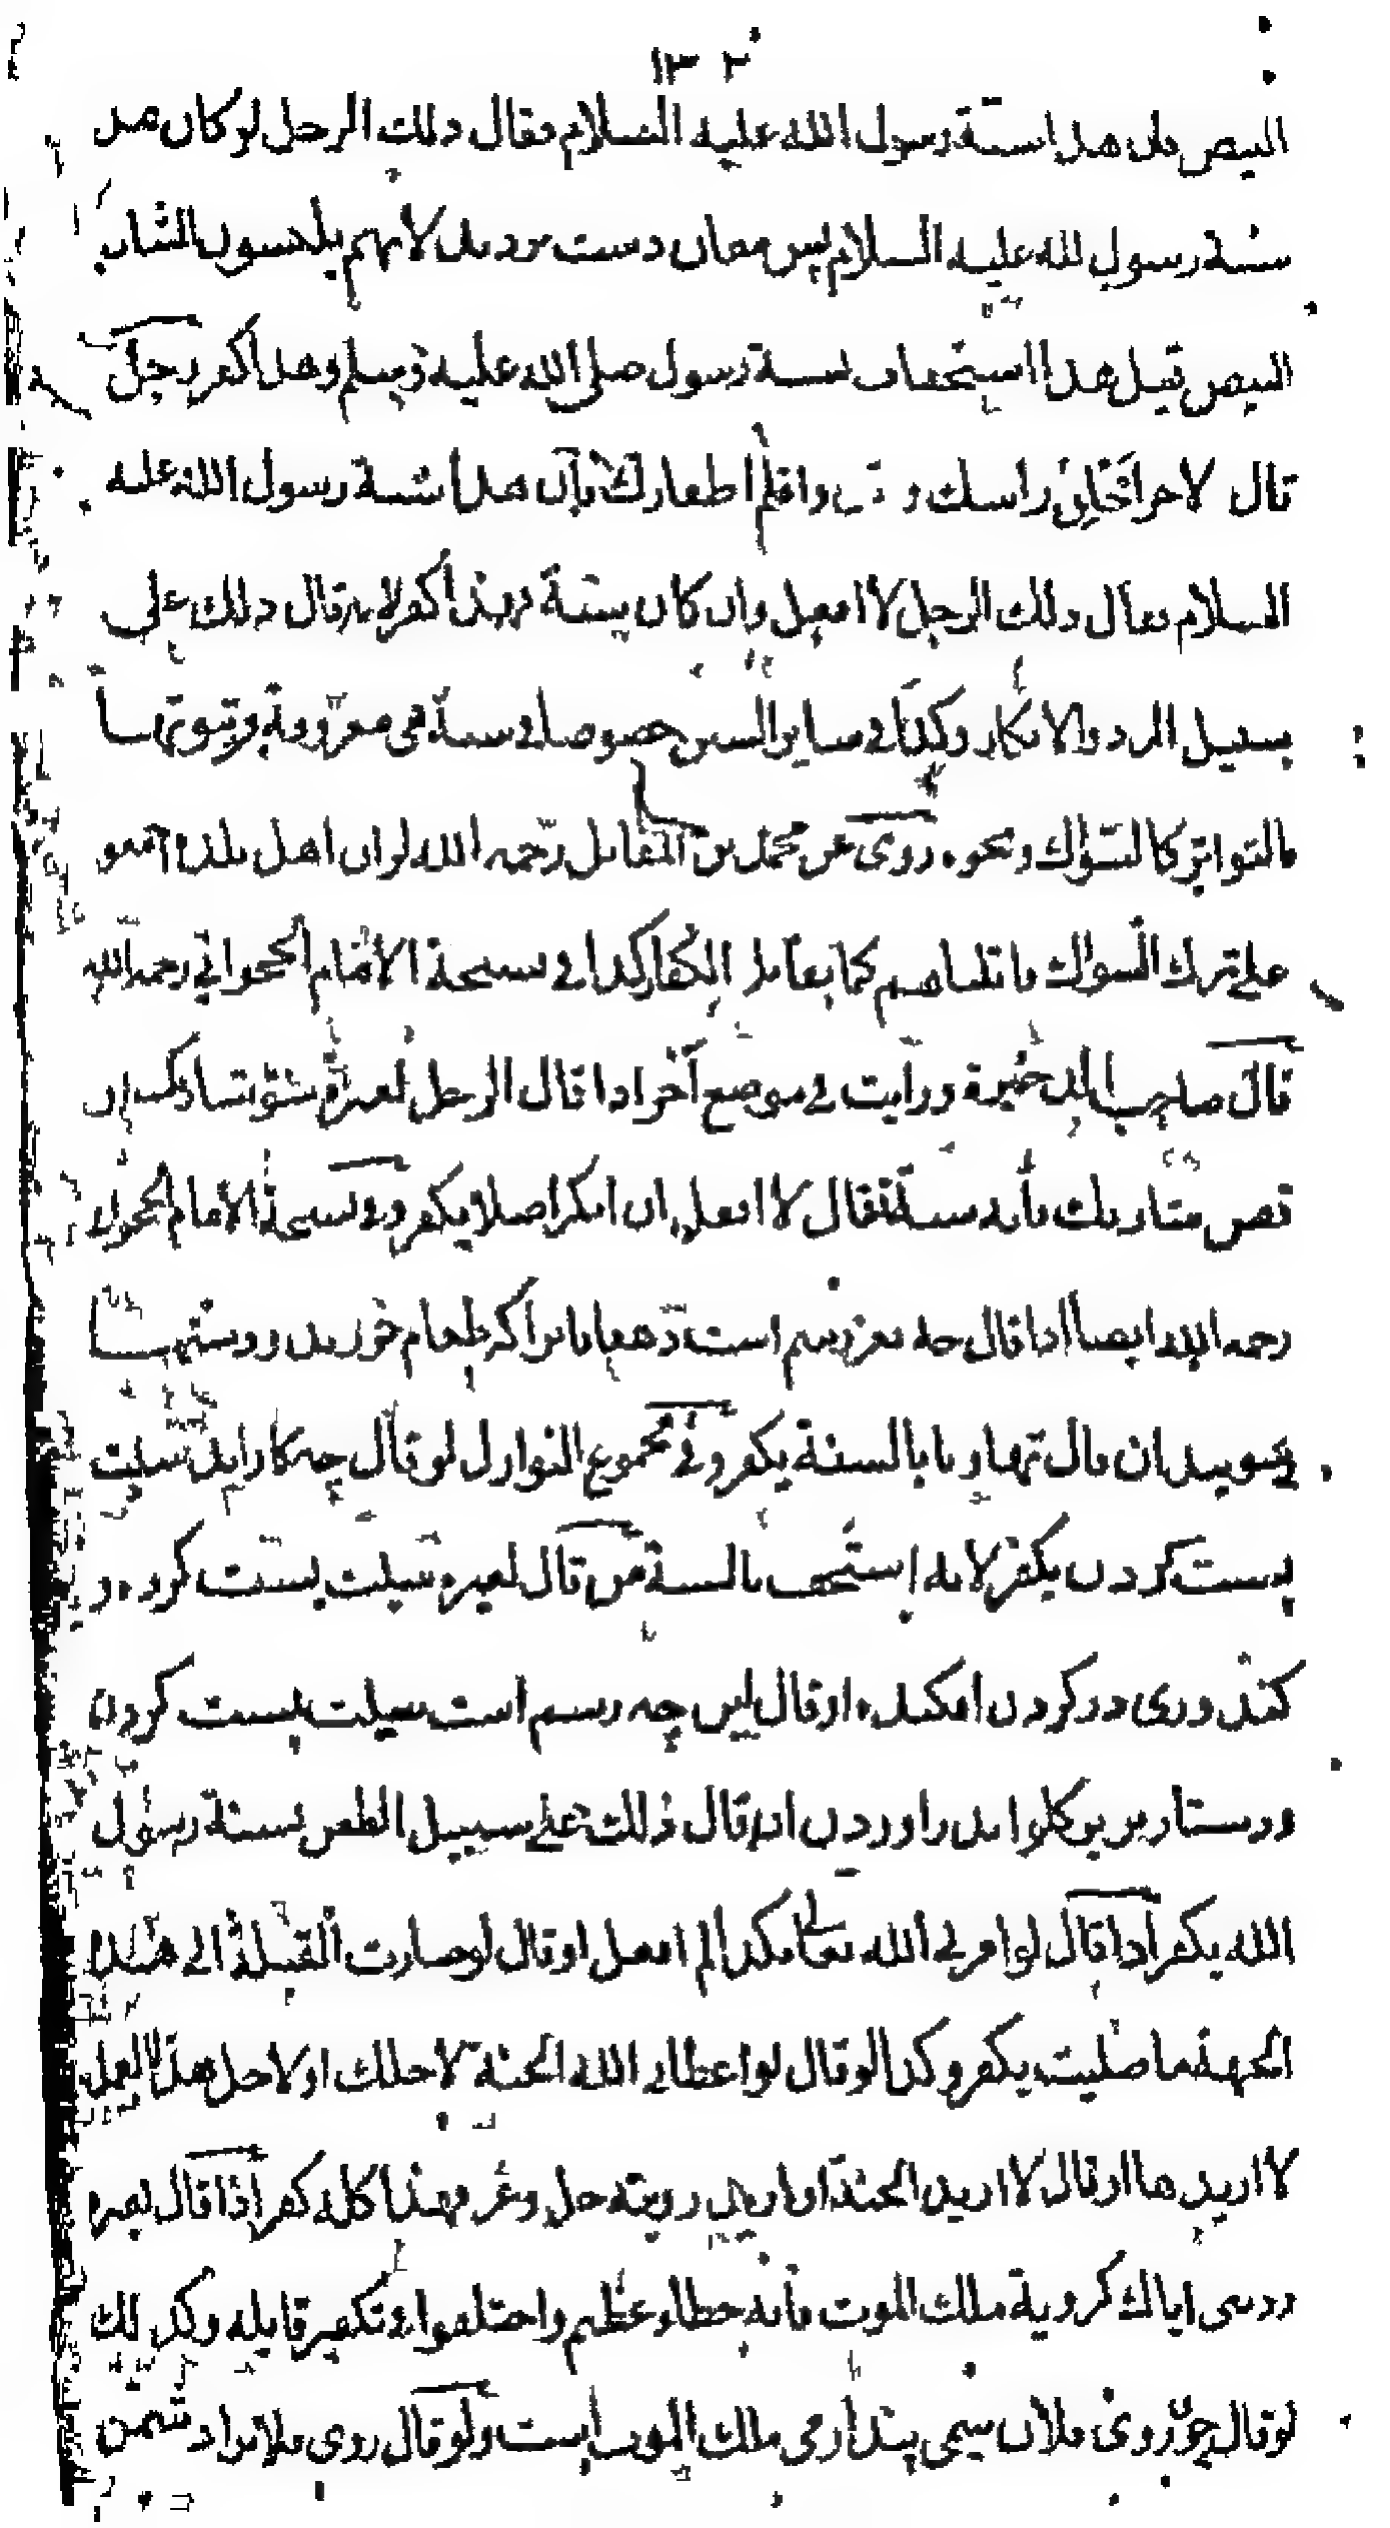 ١٣٢
البيض فان هذا سنة رسول الله عليه السلام فقال ذلك الرجل لو كان هذا
سنة رسول الله عليه السلام پس معان دست لانهم يلحسون الشاب
البيض قيل هذا استخفاف بسنة رسول صلى الله عليه وسلم وهذا كفر رجل
قال لاخر احلق راسك و واقلم اظفارك فان هذا سنة رسول الله عليه
السلام فقال ذلك الرجل لا افعل وان كان سنة فهذا كفر لانه قال ذلك على
سبيل الرد والانكار وكذا في ساير السنن خصوصا في سنة هي معروفة وثبوتها
بالتواتر كالسواك ونحوه روى عن محمد بن المقاتل رحمه الله لو ان اهل بلدة اجمعو
على ترك السواك قاتلناهم كما يقاتل الكفار كذا في نسخة الامام الحلواني رحمه الله
قال صاحب الذخيرة ورايت في موضع آخر اذا قال الرجل لغيره
قص شاربك فانه سنة فقال لا افعل ان انكر اصلا يكفر وفي نسخة الامام الحلواني
رحمه الله ايضا اذا قال چه نغز رسم است دهقانانرا كه طعام خورند ودست
نشويند ان قال تهاونا بالسنة يكفر وفي مجموع النوازل لو قال چه كار ايد سبلت
پست كردن يكفر لانه استخف بالسنة من قال لغيره سبلت پست كرده و
كند وري در كردن افكنده او قال اين چه رسم است سبلت پست كردن
ودستار بزير كلو اندر اوردن ان قال ذلك على سبيل الطعن بسنة رسول
الله يكفر اذا قال لو امرني الله تعالى بكذا لم افعل او قال لو صارت القبلة الى هذه
الجهة ما صليت يكفر وكذا لو قال لو اعطاني الله الجنة لاجلك او لاجل هذا العمل
لا اريدها او قال لا اريد الجنة او اريد رويته جل وعز فهذا كله كفر اذا قال لغيره
ردسى اياك كروية ملك الموت فانه خطاء عظيم واختلفوا في تكفير قايله وكذلك
لو قال چون روي فلان بيني پندارمي ملك الموت است ولو قال روي فلانرا دشمن